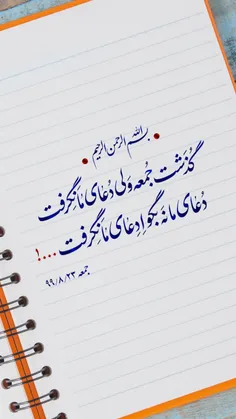 بسم الله الرحمن الرحیم
گذشت جمعه ولی دعای ما نگرفت
دعای ما نه بگو ادعای ما نگرفت ....!
جمعه ۹۹/۸/۲۳